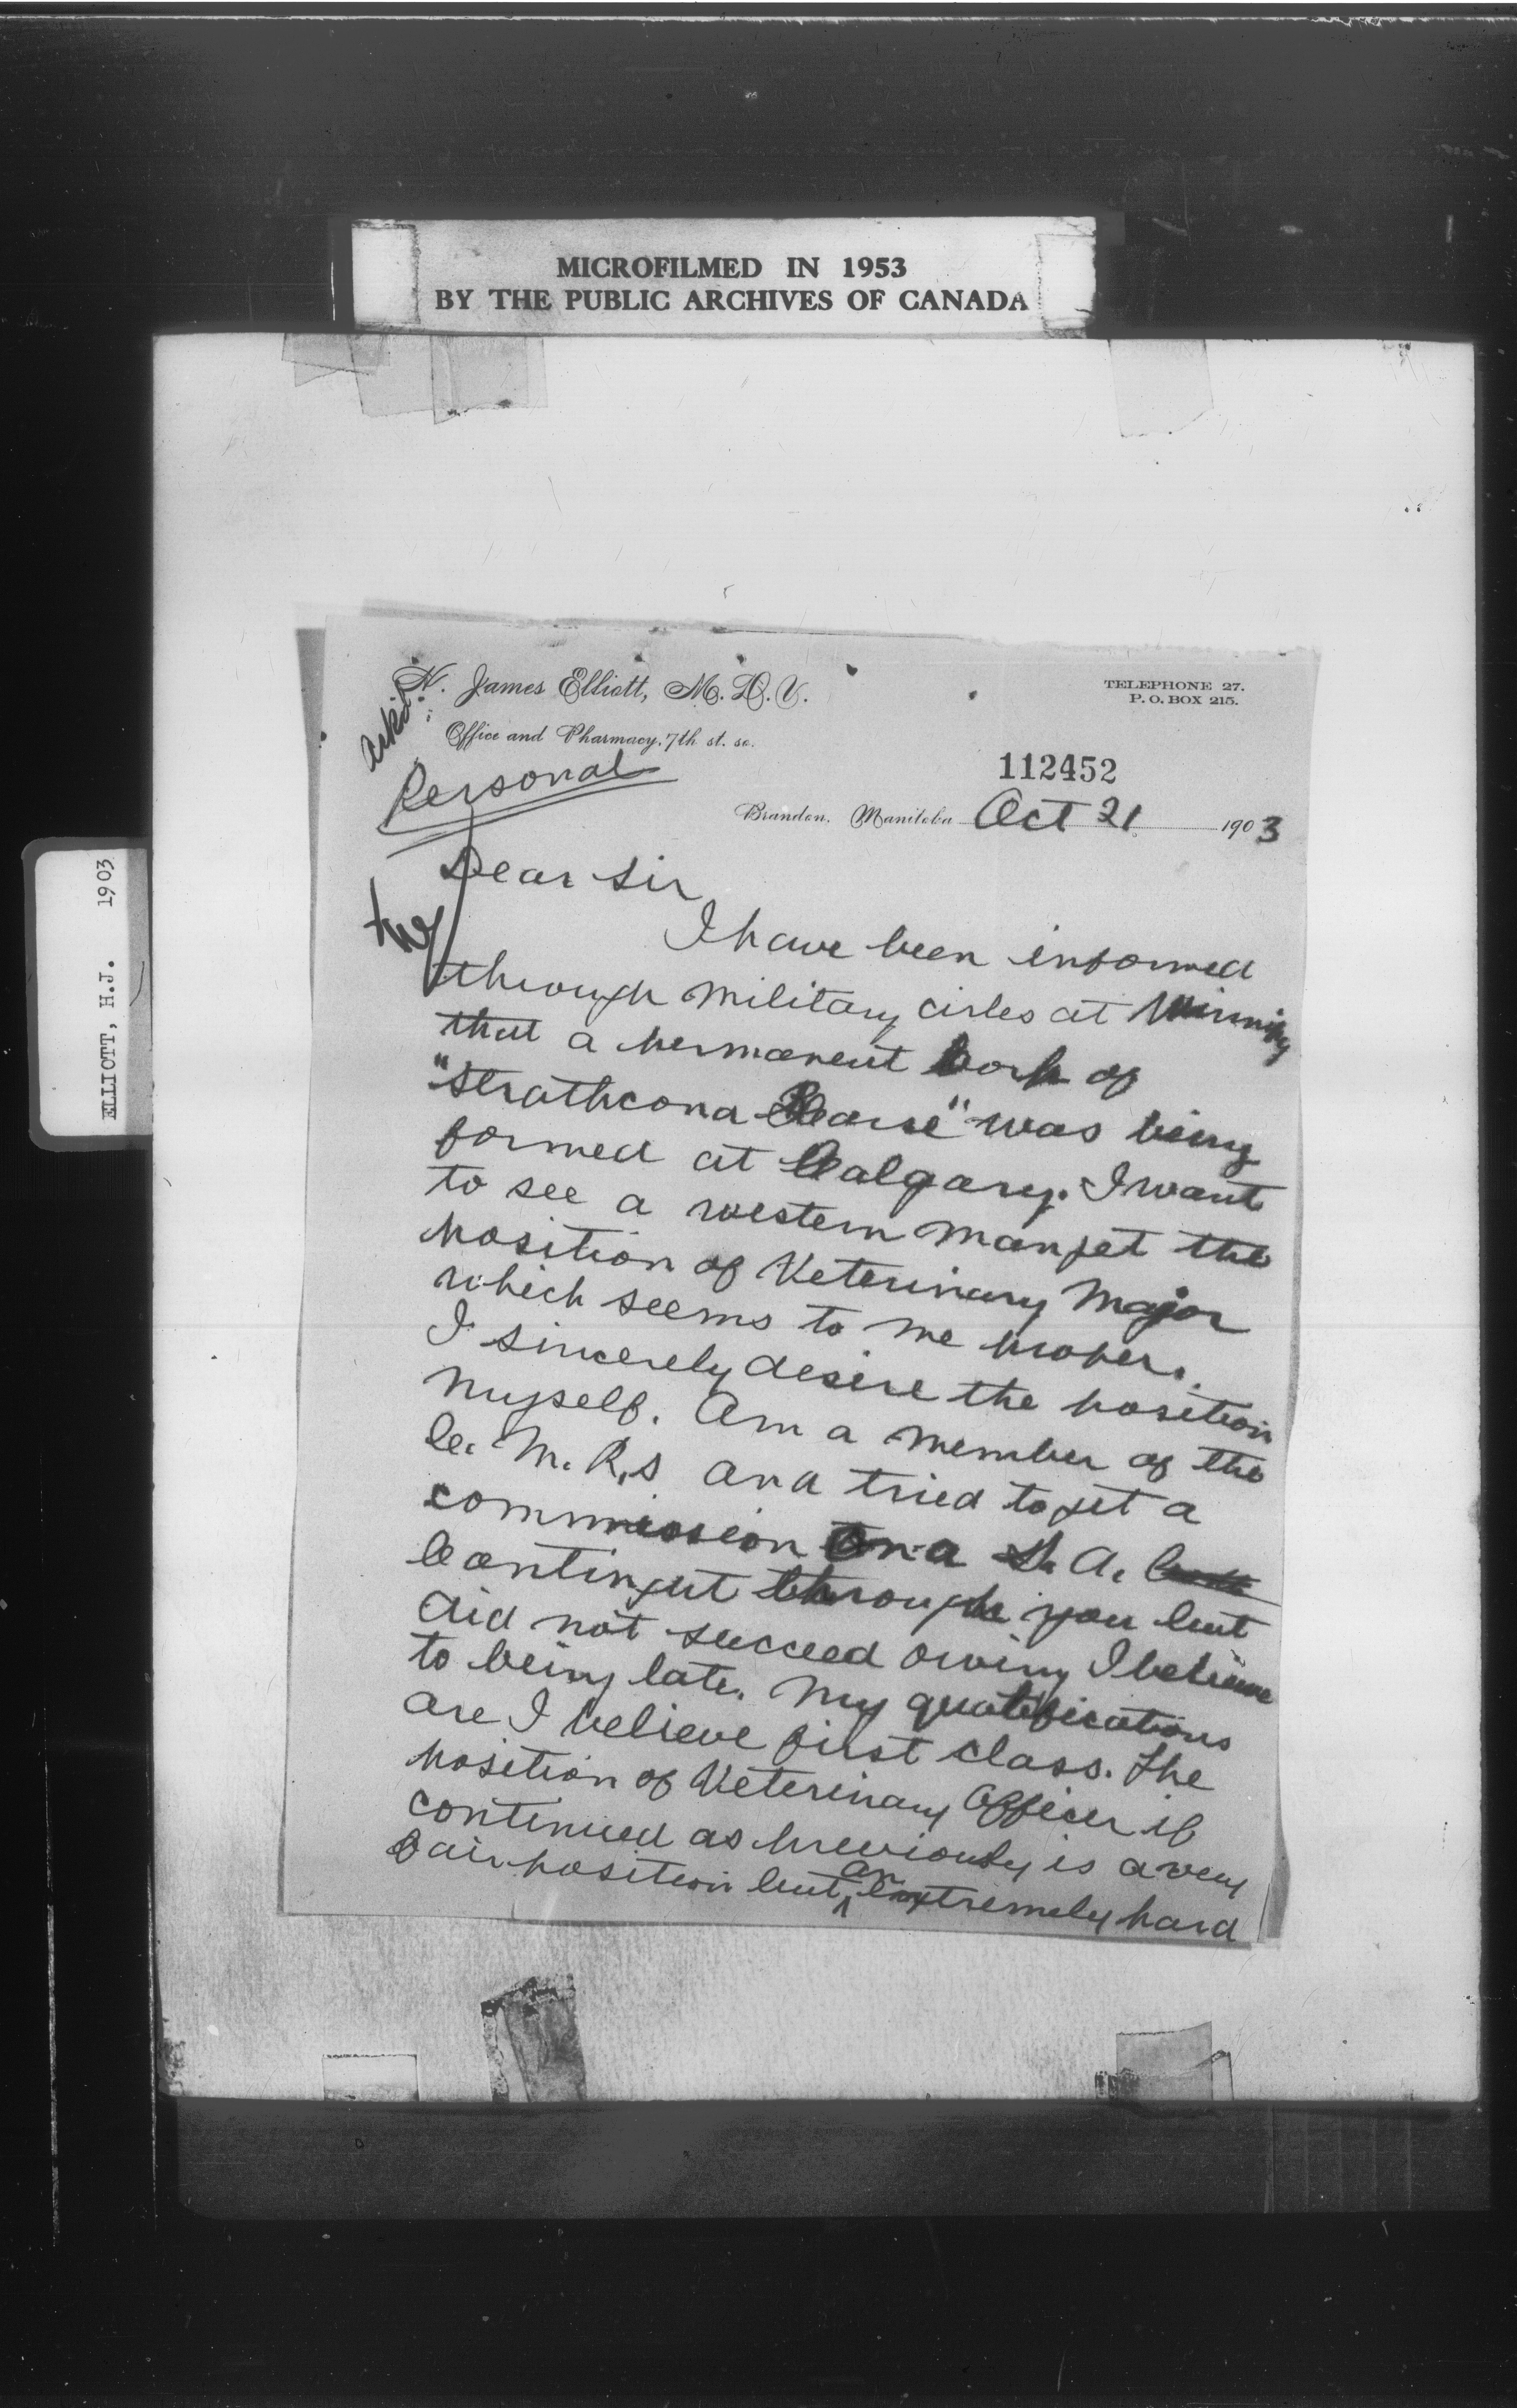 MICROFILMED IN 1953
BY THE PUBLIC ARCHIVES OF CANADA
ELLIOTT, H.J. 1903
H. James Elliott, M.D.V.
Office and Pharmacy, 7th st. so.
TELEPHONE 27.
P.O. BOX 215.
ackd.
Personal
112452
Brandon, Manitoba Oct 21 1903
Dear Sir
I have been informed
through military circles at Winnipeg
that a permanent Corp of
"Strathcona Horse" was being
formed at Calgary. I want
to see a western man get the
position of Veterinary Major
which seems to me proper.
I sincerely desire the position
myself. Am a member of the
C. M. R.s and tried to get a
commission on a S. A.
Contingut through you but
did not succeed owing I believe
to being late. My qualifications
are I believe first class. The
position of Veterinary Officer if
continued as previously is a very
fair position but an extremely hard